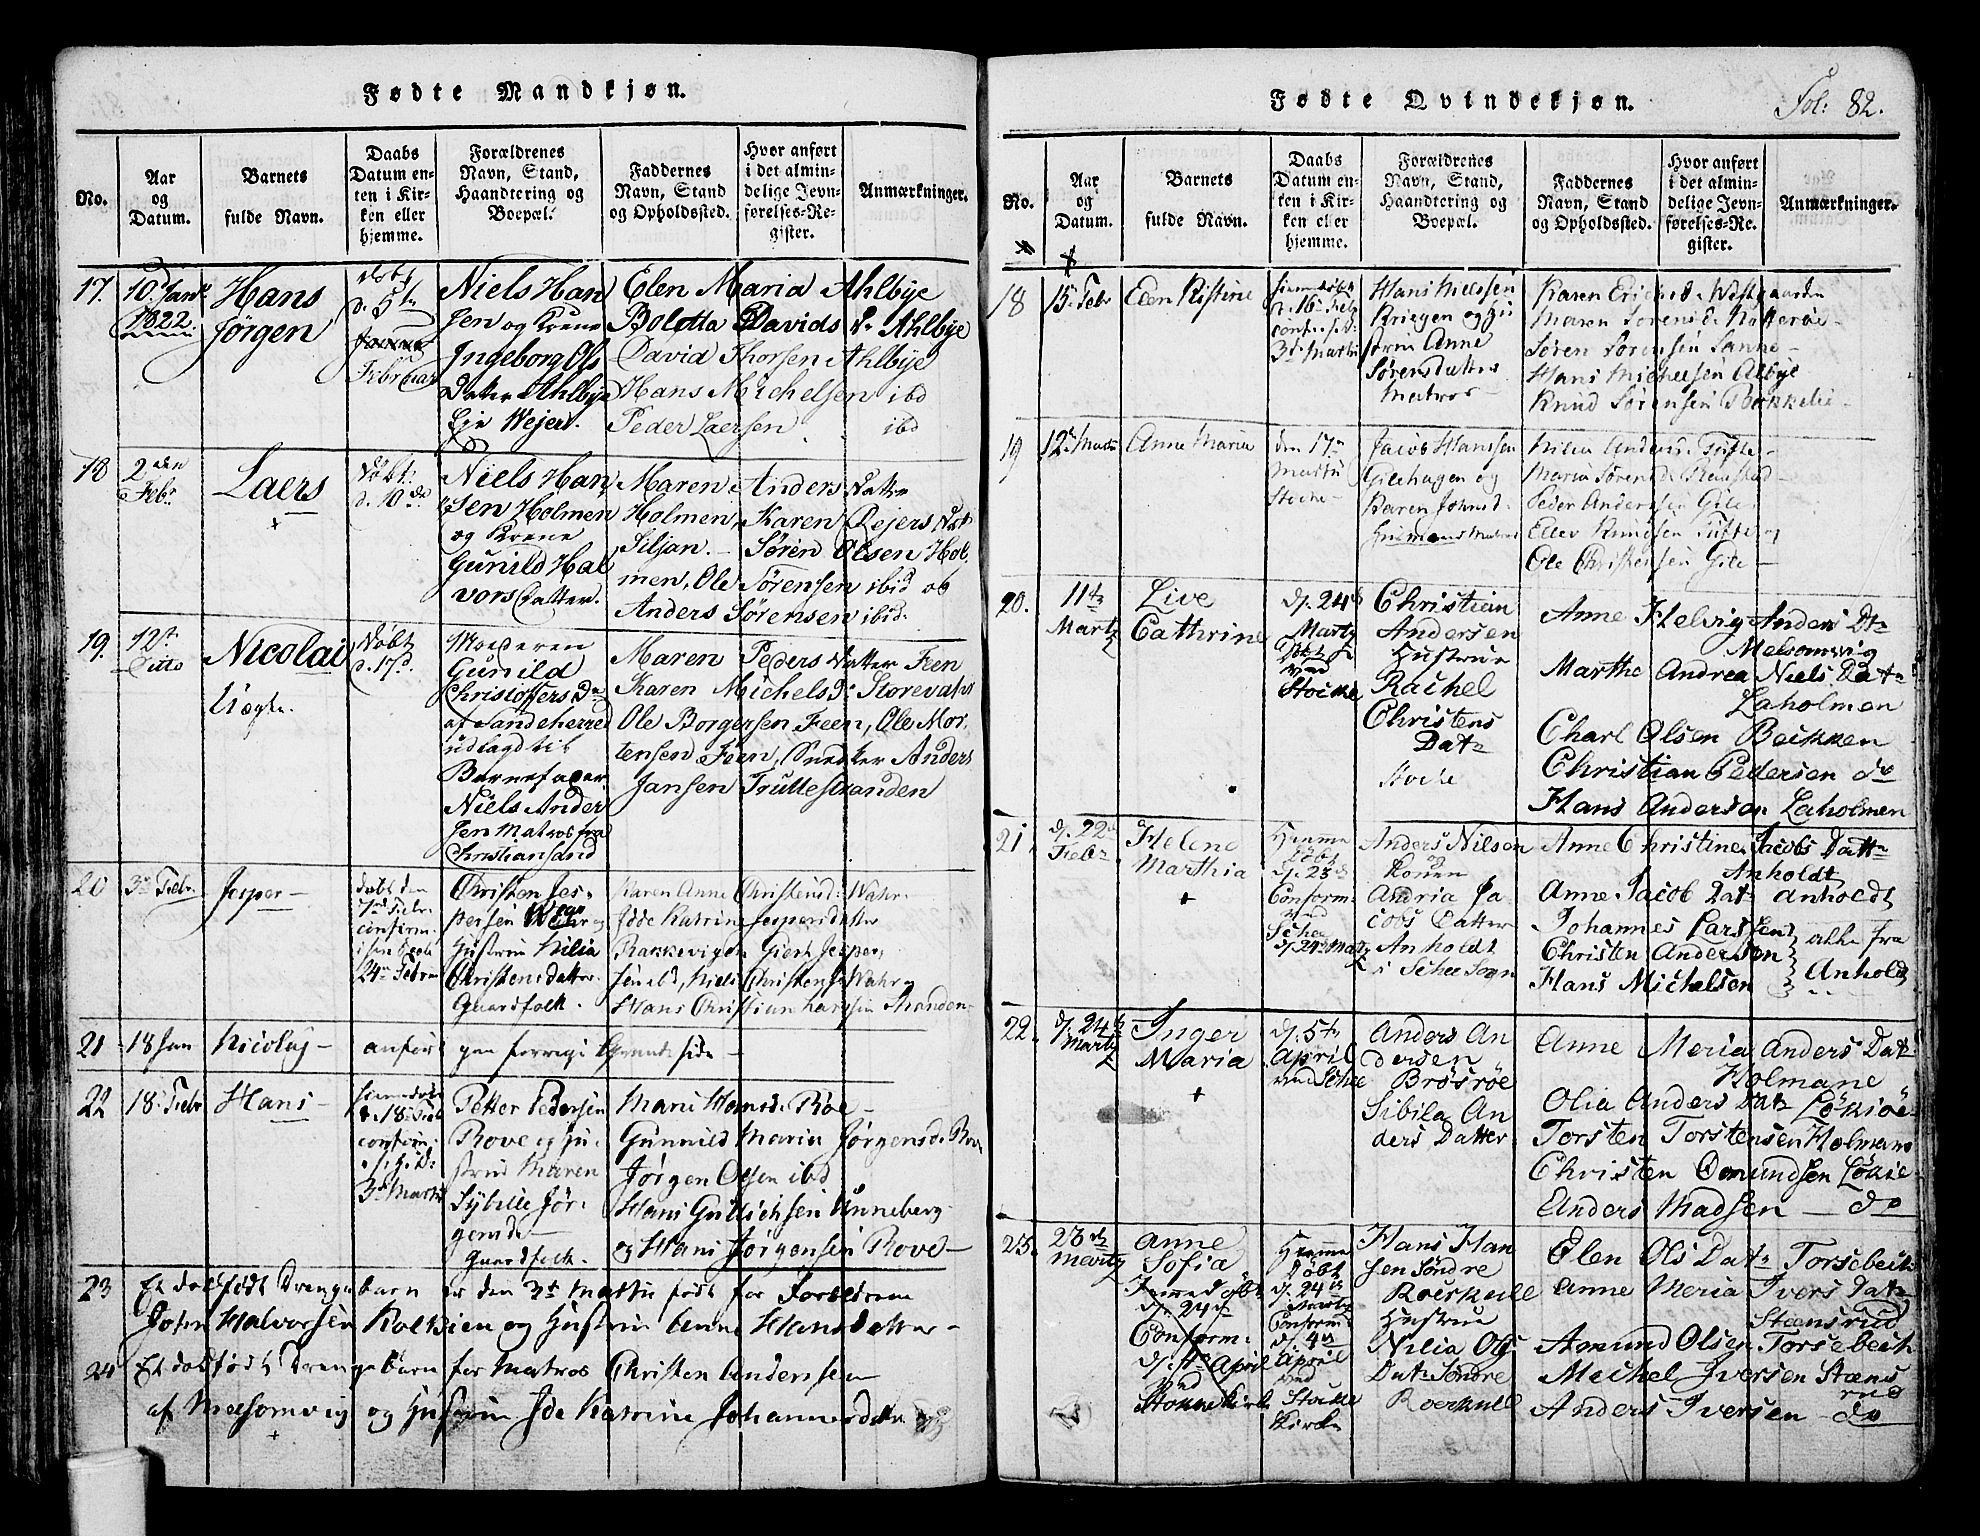 Fødte Mandkjøn.
No.
Aar
og
Datum.
Barnets
fulde Navn.
Daabs
Datum en-
ten i Kir-
ken eller
hjemme.
Forældrenes
Navn, Stand,
Haandtering og
Boepæl.
Faddernes
Navn, Stand
og Opholdssted.
Hvor anført
i det almin-
delige Jevn-
førelses-Re-
gister.
Anmærkninger.
17.
10d Janr
1822.
Hans
Jørgen
døbt
d. 5te
Februar
Niels Han
sen og Kone
Ingeborg Ols
Datter Ahlbye
Eje Wejer.
Elen Maria Ahlbye
Bolette Davids Dr Ahlbye
David Thorsen Ahlbye
Hans Michelsen ibd
Peder Laersen ibd
18
2den
Febr
Laers
+
Døbt:
d. 10de
Niels Han
sen Holmen
og Kone
Gunild Hal
vors Datter.
Maren Anders Datter
Holmen, Karen Rejers Dat
Siljan. Søren Olsen Hol
men, Ole Sørensen ibid og
Anders Sørensen ibid.
19.
12te
Ditto
Nicolai
Uægte.
Døbt
d. 17d.
Moederen
Gunild
Christoffers Dr
af Sandeherred
udlagd til
Barnefader
Niels Ander
sen Matros fra
Christiansand
Maren Peders Datter Feen
Karen Michels Dr Storevahr
Ole Borgersen Feen, Ole Mor
tensen Feen, Snedker Anders
Jansen Truttestranden
20
3de Febr.
Jesper
døbt den
7nd Febr.
confirm.
24de Febr
Christen Jes-
persen
Hustru Nilia
Christensdatter
Gaardfolk.
Karen Anne Christensd: Wahr.
Idde Katrine Jespersdatter
Bakkevigen Giert Jesper
sen ibd, Niels Christens: Wahr og
Hans Christian Larssen Stranden
21
18 Jan
Nicolay
anført paa forrige side
22
18 Febr
Hans
hiemedøbt
d. 18 Feb
confirm:
3d Martii
Petter Pedersen
Rove og Hu-
strue Maren
Sybille Jør-
gensd.
Gaardfolk.
Mari Hansd. Roe
Gunnild Maria Jørgensd. Rove
Jørgen Olsen ibd
Hans Gullichsen Unneberg
og Hans Jørgensen Rove
23
Et dødfødt Drengebarn er den 3d Martii født for Forældrene
John Halvorsen og Hustru Anne Hansdatter
24
Et dødfødt Drengebarn for Matros Christen Andersen
af Melsomvig og Hustrue Ide Katrine Johannesdatter
+
Fødte Qvindekjøn.
Fol: 82.
No.
Aar
og
Datum.
Barnets
fulde Navn.
Daabs
Datum en-
ten i Kir-
ken eller
hjemme.
Forældrenes
Navn, Stand,
Haandtering og
Boepæl.
Faddernes
Navn, Stand
og Opholdssted.
Hvor anført
i det almin-
delige Jevn-
førelses-Re-
gister.
Anmærkninger.
18
15 Febr
Elen Kistine
hiemdøbt
d. 16 Febr
3d Martii
Hans Nielssen
Kriegen og Hu
strue Anne
Sørensdatter
Matros
Karen Ericsd. Westgaarden
Maren Sørensd. Natterøe
Søren Sørensen Sanne
Hans Michelsen Albye
Knud Sørensen Bakkelie
19
12te Marti
Anne Maria
den 17de
Martii
Stocke
Jacob Hanssen
Gilehagen og
Karen Johnsd.
Huusmand
Nilia Andersd. Tufte
Maria Sørensd. Ranstad
Peder Andersen Gile
Ellev Knudsen Tufte og
Ole Christensen Gile
20.
11te
Martz
Live
Cathrine
d. 24d
Martz
Døbt
ved
Stocke
Christian
Andersen
Hustrue
Rachel
Christens
Datr
Stocke
Anne Helvig Anders Dtr
Melsomvig
Marthe Andrea Niels Datr
Laholmen
Charl Olsen Beikken
Christian Pedersen do
Hans Andersen Laholmen
21.
d. 22d
Febr
Helene
Marthia
+
Hjemme
Døbt
d. 23d
Confirm:
ved
Schee
d. 24d Martz
Anders Nilsen
og
Konen
Andria Ja
cobs Datter
Anholdt
i Schee Sogn
Anne Christine Jacobs Dattr
Anholdt
Anne Jacob Datr Anholdt
Johannes Larssen
Christen Andersen
Hans Michelsen
alle fra
Anholdt
22.
d. 24de
Martz
Inger
Maria
+
d. 5te
April
ved Schee
Anders An
dersen
Brösröe
Sibila An
ders Datter
Anne Meria Anders Datr
Holmane
Olia Anders Datr Lökiöe
Torsten Torstensen Holmane
Christen Omundsen Lökie
Anders Madsen do
23.
23de
Martz
Anne
Sofia
Hjemmedøbt
d. 24d
Conform:
d. 4de April
ved
Stokke Kirk
Hjemme
Døbt
d. 24d
Martz
Conform
d. 4de
April
ved
Stocke
Kircke
Hans Han
sen Söndre
Roerkull
Hustrue
Nilia Ols
Datr Söndre
Roerkull
Elen Ols Datr Torsebech
Anne Meria Ivers Datr
Steensrud
Amund Olsen Torsebech
Michel Iversen Steens
rud
Anders Iversen do